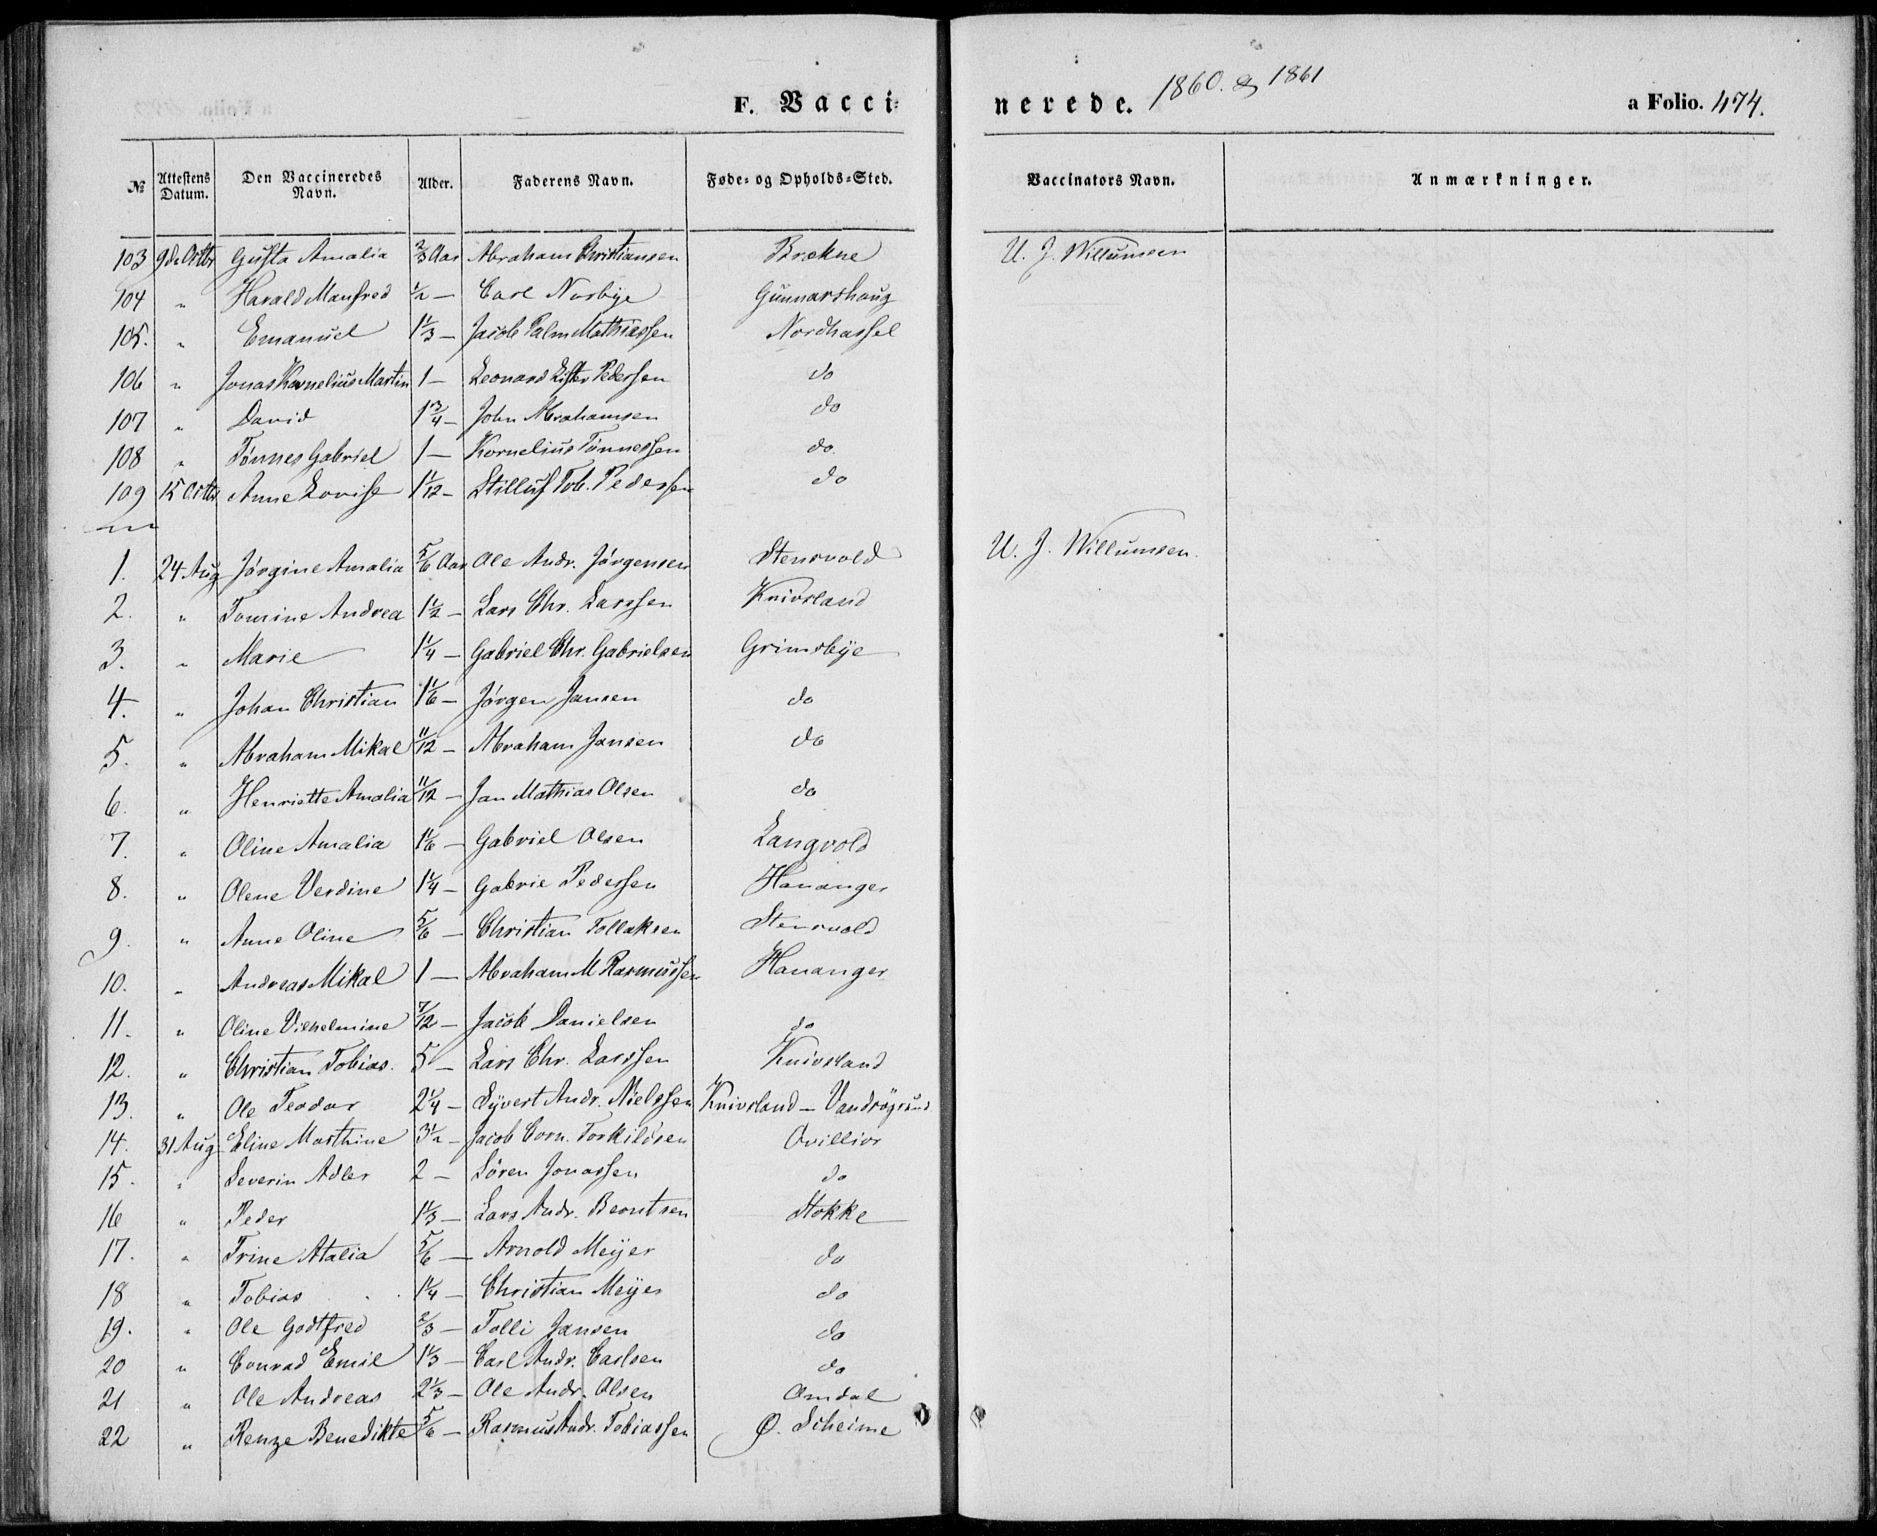 F. Vaccinerede. 1860. & 1861 a Folio. 474.
№ Attestens Datum. Den Vaccineredes Navn. Alder. Faderens Navn. Føde- og Opholds-Sted. Vaccinators Navn. Anmærkninger.
103 9de Octbr Gusta Amalia 2/3 Aar Abraham Christiansen Brekne U. J. Willumsen
104 " Harald Manfred 1/2 — Carl Norbye Gunnarshaug
105. " Emanuel 1 1/3 — Jacob Palm Mathiassen Nordhassel
106 " Jonas Kornelius Martin 1 — Leonard Lister Pedersen do
107 " David 1 3/4 — John Abrahamsen do
108 " Tønnes Gabriel 1 — Kornelius Tønnessen do.
109 15 Octbr Anne Lovise 1 1/12 — Stilluf Tob. Pedersen do
1. 24 Aug Jørgine Amalia 5/6 Aar Ole Andr. Jørgensen Stensvold U. J. Willumsen.
2. " Tomine Andrea 1 1/2 — Lars Chr. Larssen Knivsland
3. " Marie 1 1/4 — Gabriel Chr. Gabrielsen Grimsbye
4. " Johan Christian 1 1/6 — Jørgen Jansen do
5. " Abraham Mikal 11/12 — Abraham Jansen do
6. " Henriette Amalia 11/12 — Jan Mathias Olsen do
7. " Oline Amalia 1 1/6 — Gabriel Olsen Langvold
8. " Olene Verdine 1 1/4 — Gabrie Pedersen Hananger
9. " Anne Oline 5/6 — Christian Tollaksen Stensvold
10. " Andreas Mikal 1 — Abraham M Rasmussen Hananger
11. " Oline Vilhelmine 7/12 — Jacob Danielsen do
12. " Christian Tobias. 5 — Lars Chr. Larssen Knivsland
13. " Ole Teodor 2 1/4 — Syvert Andr. Nielssen Knivsland — Vandsøgrund
14. 31 Aug Eline Marthine 3 1/2 — Jacob Corn. Torkildsen Ovillior
15. " Severin Adler 2 — Søren Jonassen do
16 " Peder 1 1/3 — Lars Andr. Berntsen Stokke
17. " Trine Atalia 5/6 — Arnold Meyer do
18 " Tobias 1 1/4 — Christian Meyer do
19. " Ole Godtfred 2/3 — Tolli Jansen do
20 " Conrad Emil 1 1/3 — Carl Andr. Carlsen do
21 " Ole Andreas 2 1/3 — Ole Andr. Olsen Omdal
22 " Renze Benedikte 5/6 — Rasmus Andr. Tobiassen Ø. Scheime